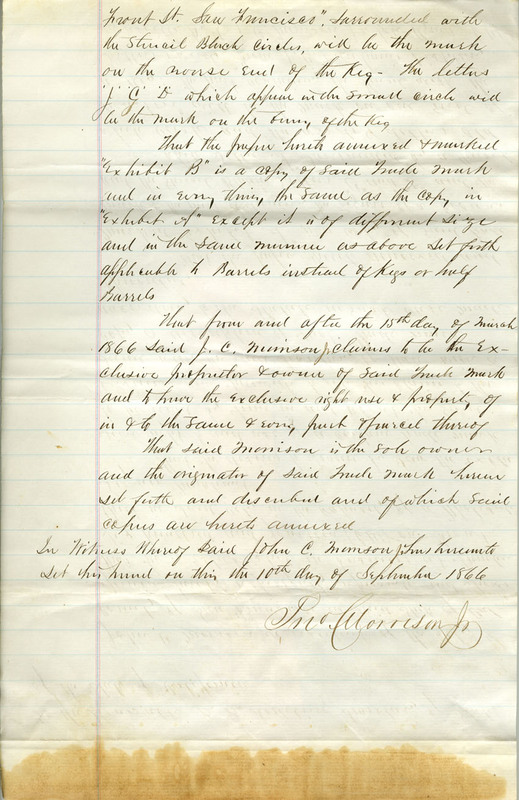 Front St. San Francisco", surrounded with
the Stencil Black circles, will be the mark
on the reverse end of the Keg - The letters
"J" "C" & which appear in the small circle will
be the mark on the bung of the Keg
That the paper hereto annexed & marked
"Exhibit B" is a copy of said Trade Mark
and in every thing, the same as the copy in
"Exhibit A" Except it is of different size
and in the same manner as above set forth
applicable to Barrels instead of Kegs or half
Barrels
That from and after the 15th day of March
1866 said J. C. Morrison Jr claims to be the Ex-
clusive proprietor & owner of said Trade Mark
and to have the Exclusive right use & property of
in & to the same & every part & parcel thereof
That said Morrison is the sole owner
and the originator of said Trade Mark herein
set forth and described and of which said
copies are hereto annexed
In Witness Whereof said John C. Morrison Jr has hereunto
set his hand on this the 10th day of September 1866
Jno. C Morrison Jr